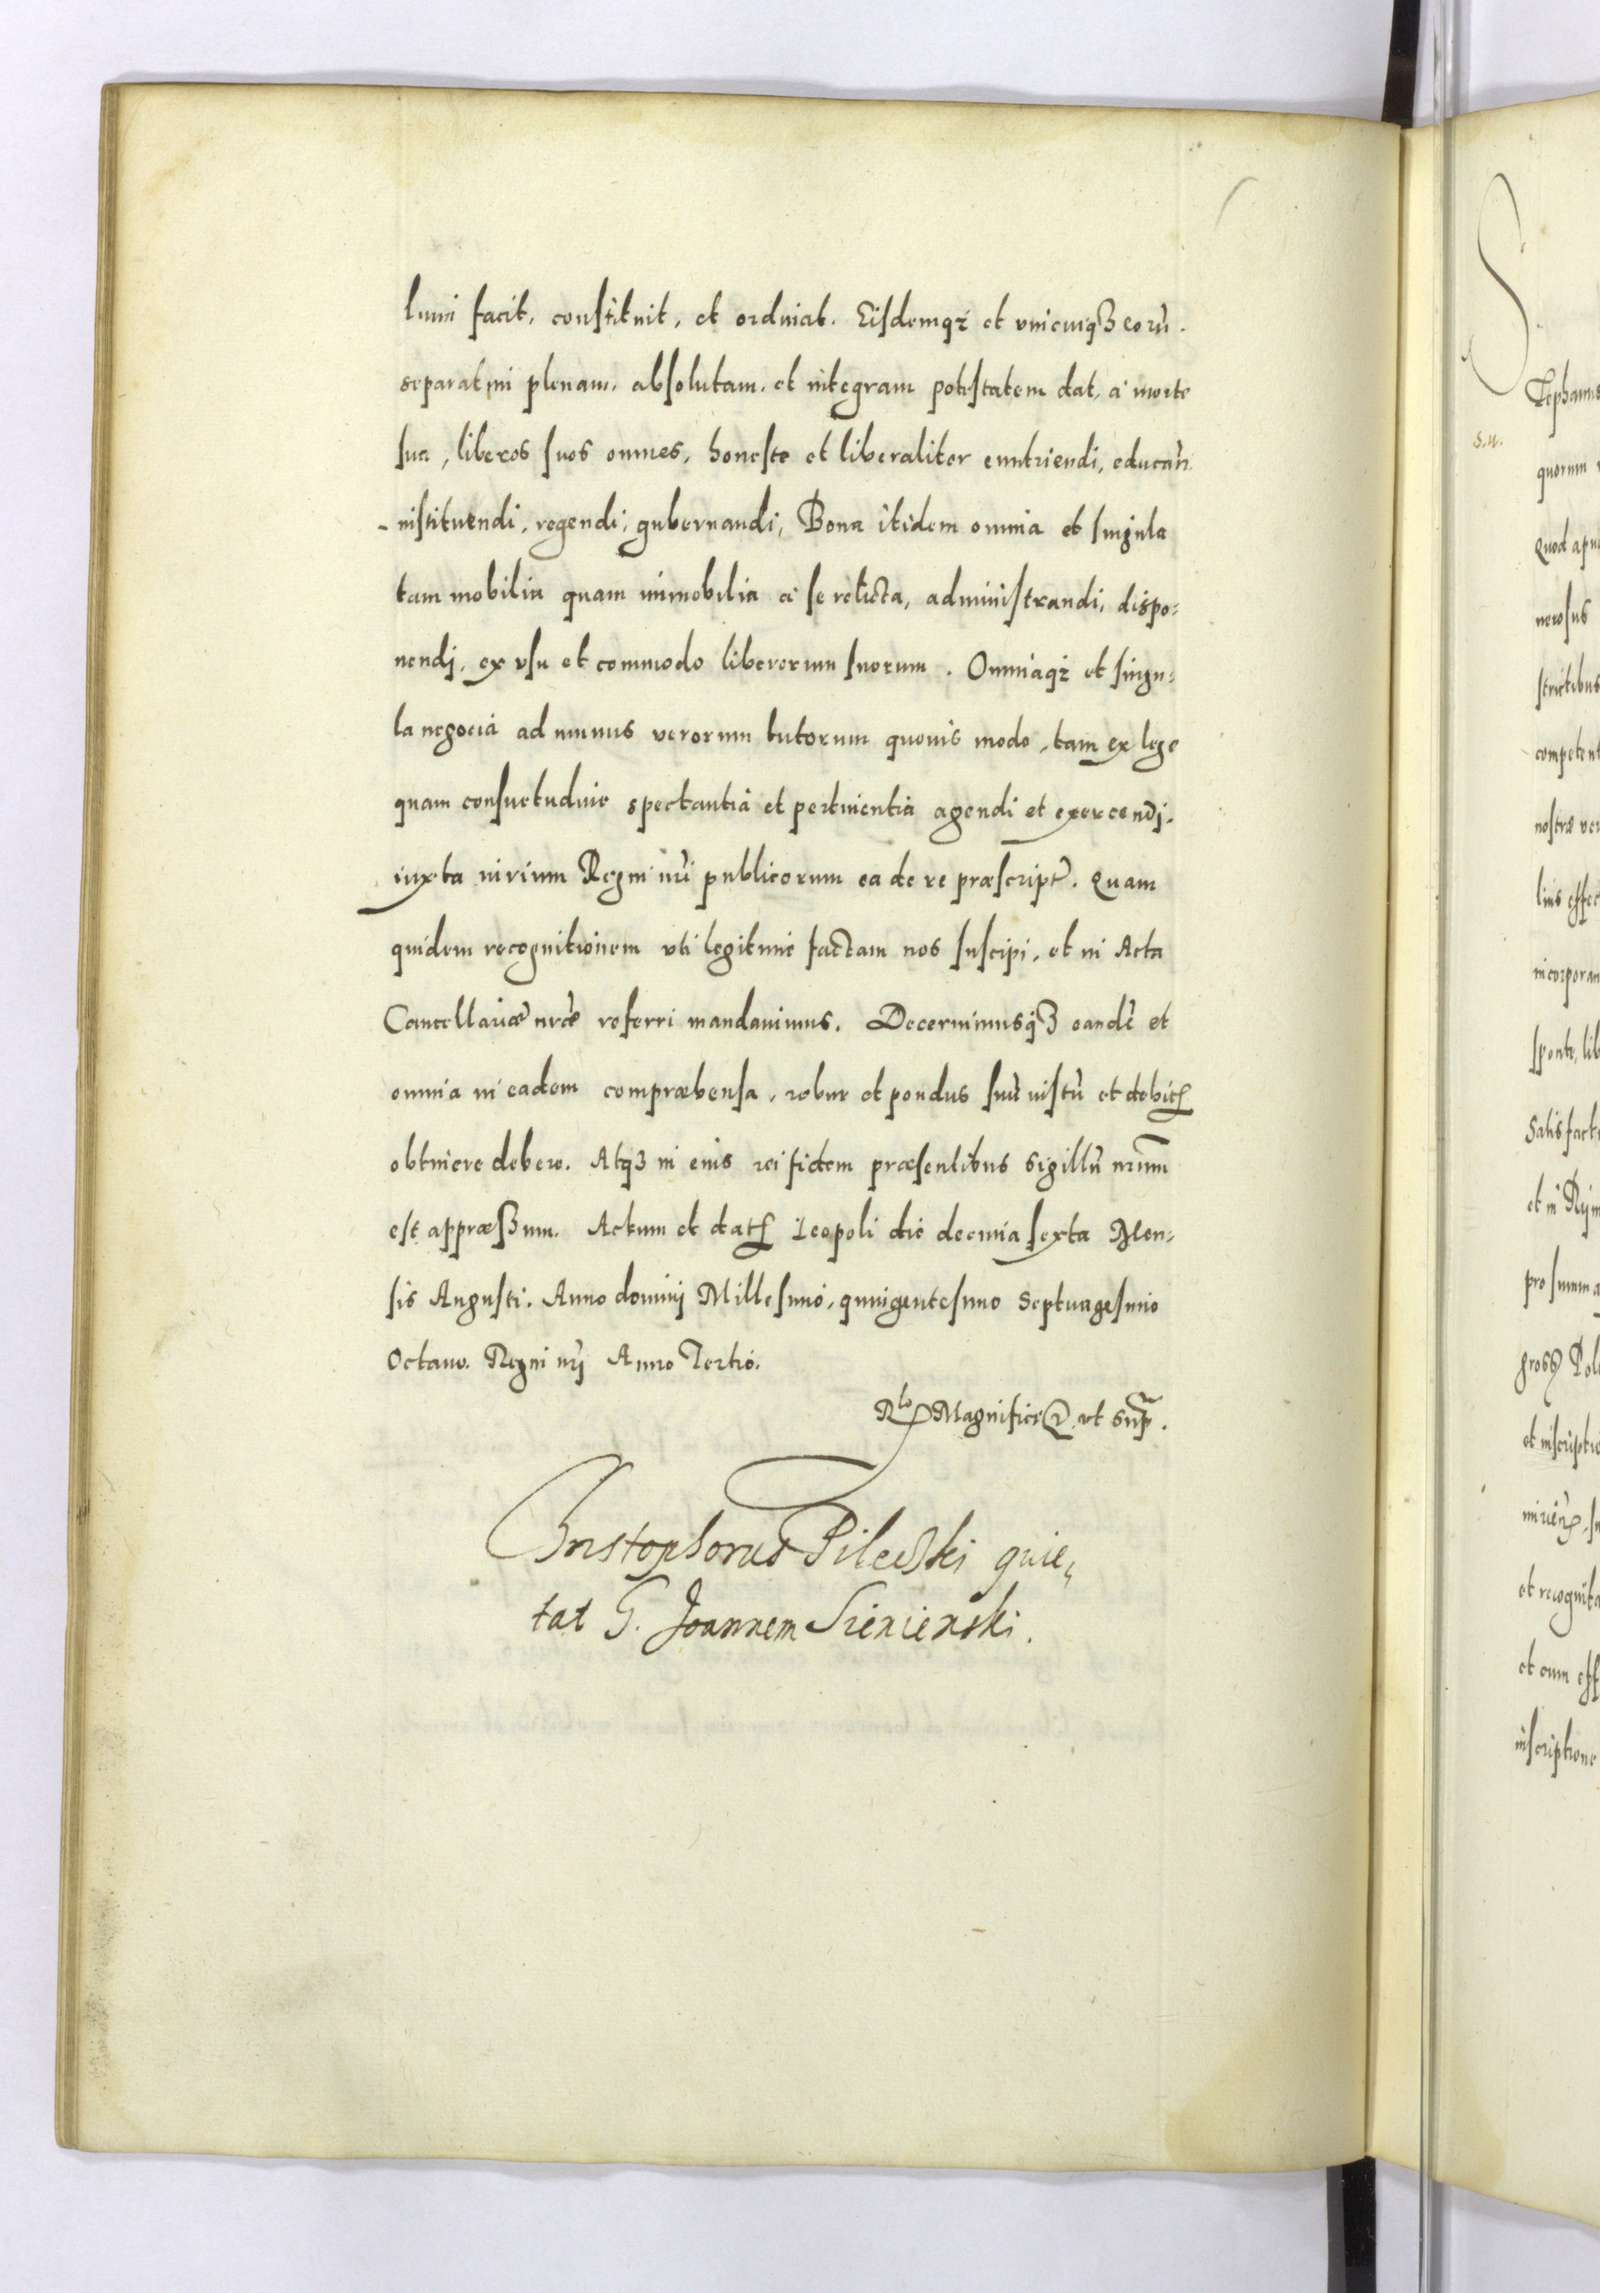 luni facit, constituit, et ordinat. Eisdemq3 et unicuiq3 eorū.
separatim plenam, absolutam, et integram potestatem dat, a morte
sua, liberos suos omnes, honeste et liberaliter enutriendi, educan̄.
instituendi, regendi, gubernandi, Bona itidem omnia et singula
tam mobilia quam immobilia a se relicta, administrandi, dispo-
nendj, ex usu et commodo liberorum suorum. Omniaq3 et singu-
la negocia ad munus verorum tutorum quovis modo, tam ex lege
quam consuetudine spectantia et pertinentia agendi et exercendj.
iuxta iurium Regni nr̄i publicorum ea de re præscript. Quam
quidem recognitionem uti legitime factam nos suscipi, et in Acta
Cancellariæ nr̄æ referri mandavimus. Decernimusq3 eandē et
omnia in eadem compræhensa, robur et pondus suū iustū et debitꝭ
obtinere debere. Atq3 in eius rei fidem præsentibus sigillū nr̄um
est appræssum. Actum et datꝭ Leopoli die decima sexta Men-
sis Augusti. Anno dominj Millesimo, quingentesimo Septuagesimo
Octavo. Regni nr̄j Anno Tertio.
Rlō Magnifici ut sup̄.
Christophorus Pileczki quie-
tat G. Joannem Sienienski.
S
Tephanus
s.n.
quorum
Quod apu
nerosus
strictibus
competent
nostræ ver
lius effec
incorporan
sponte, lib
Satisfact
et in Rei
pro summa
gross Pol
et inscriptio
et recognita
et cum eff
inscriptione